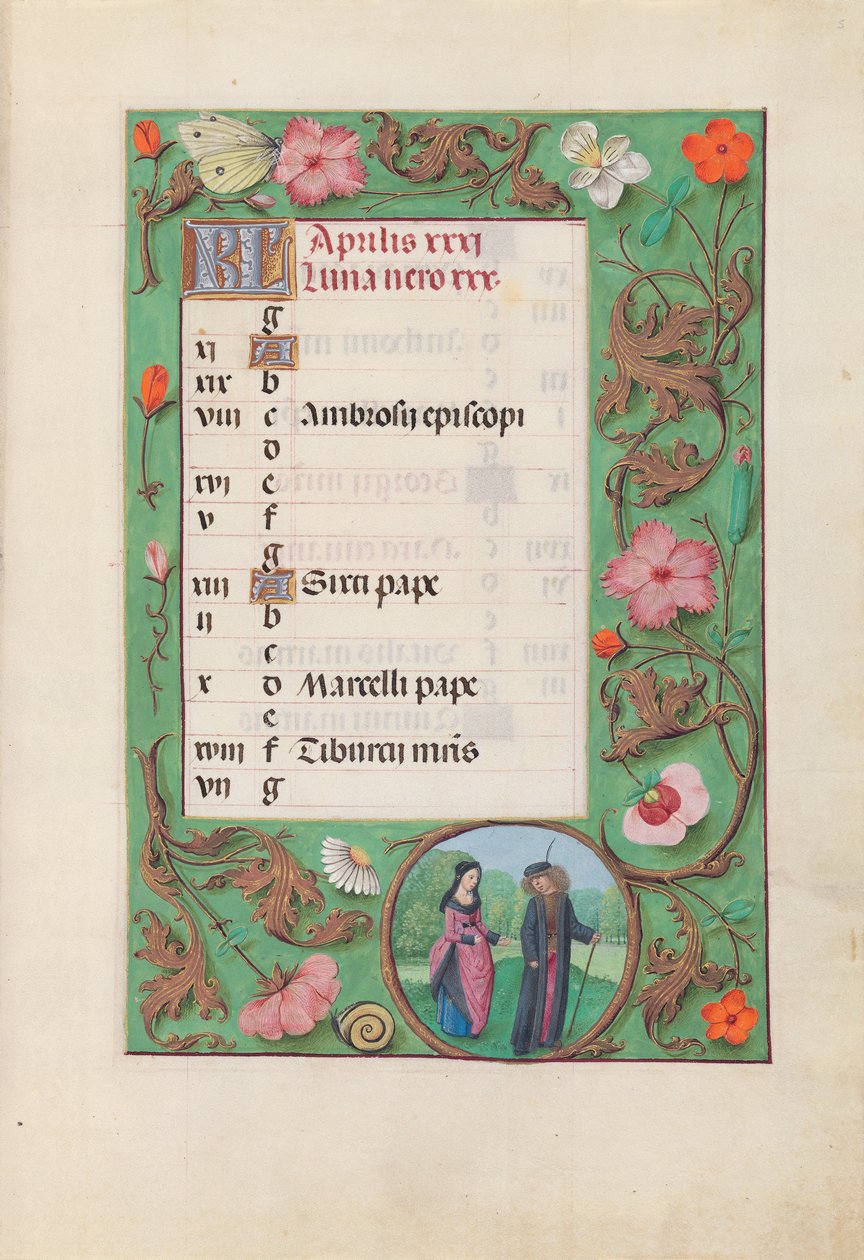 KL Aprilis xxxi
Luna vero xxx.
g
xi A
xix b
viii c Ambrosij episcopi
d
xvi e
v f
g
xiii A Sixti pape
ii b
c
x d Marcelli pape
e
xviii f Tiburcij mr̄is
vii g
5